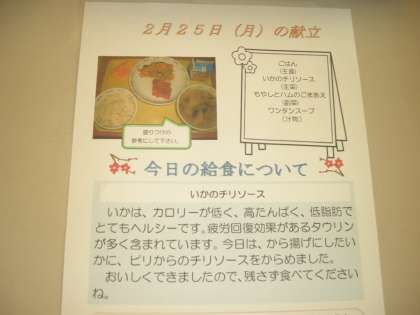 2月25日（月）の献立
ごはん
（主食）
いかのチリソース
（主菜）
もやしとハムのごまあえ
（副菜）
ワンタンスープ
（汁物）
盛りつけの
参考にして下さい。
今日の給食について
いかのチリソース
いかは、カロリーが低く、高たんぱく、低脂肪で
とてもヘルシーです。疲労回復効果があるタウリン
が多く含まれています。今日は、から揚げにしたい
かに、ピリからのチリソースをからめました。
おいしくできましたので、残さず食べてください
ね。